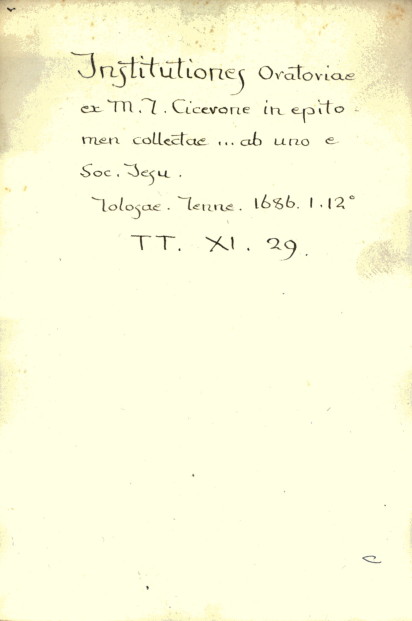 Institutiones Oratoriae
ex M. T. Cicerone in epito-
men collectae ... ab uno e
Soc. Jesu.
Tolosae. Tenne. 1686. 1. 12°
TT. XI. 29.
c